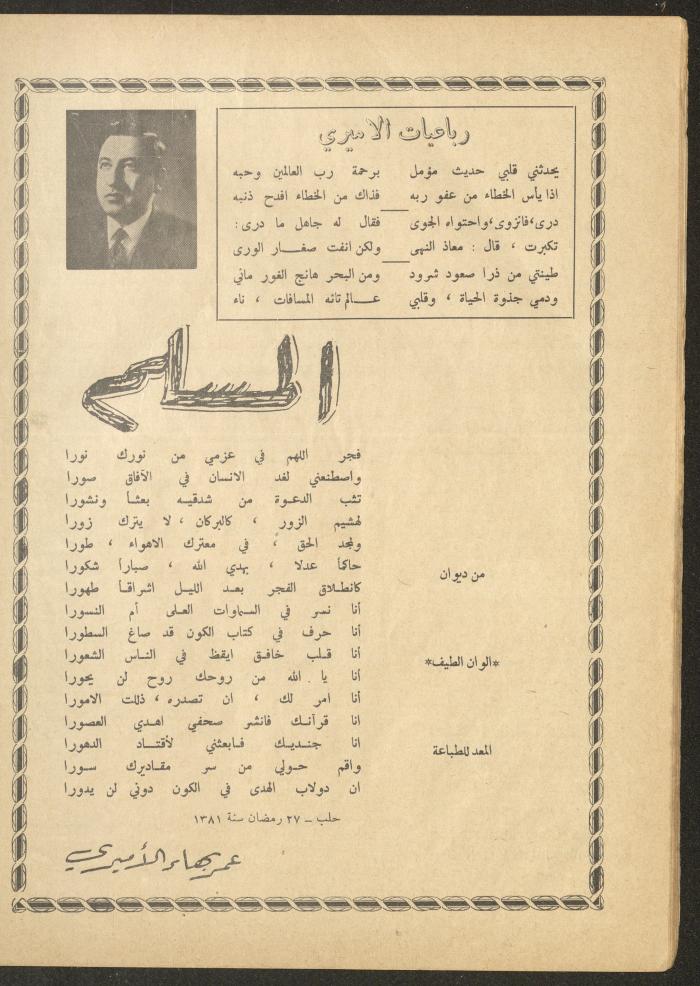 رباعيات الاميري
يحدثني قلبي حديث مؤمل برحمة رب العالمين وحبه
اذا يأس الخطاء من عفو ربه فذاك من الخطاء افدح ذنبه
درى، فانزوى، واحتواه الجوى فقال له جاهل ما درى :
تكبرت ، قال : معاذ النهى ولكن انفت صغـــار الورى
طينتي من ذرا صعود شرود ومن البحر هائج الغور مائي
ودمي جذوة الحياة ، وقلبي عـــالم تائه المسافات ، ناء
المسلم
فجر اللهم في عزمي من نورك نورا
واصطنعني لغد الانسان في الآفاق صورا
تثب الدعـوة من شدقيـه بعثـاً ونشورا
لهشيم الزور ، كالبركان ، لا يترك زورا
ولمجد الحق ، في معترك الاهواء ، طورا
حاكماً عدلا ، يهدي الله ، صباراً شكورا
كانطـلاق الفجر بعـد الليـل اشراقـاً طهورا
أنا نسر في السماوات العـلى أم النسورا
أنا حرف في كتاب الكون قد صاغ السطورا
أنا قـلب خافـق ايقظ في النـاس الشعورا
أنا يا الله من روحك روح لن يحورا
أنا امر لك ، ان تصدره ، ذللت الامورا
انا قرآنـك فانشر صحفي اهـدي العصورا
انا جنـديـك فـابعثني لأقتـاد الدهورا
واقم حـولي من سر مقـاديرك سـورا
ان دولاب الهدى في الكون دوني لن يدورا
حلب ــ ٢٧ رمضان سنة ١٣٨١
عمر بهاء الأميري
من ديوان
*الوان الطيف*
المعد للطباعة